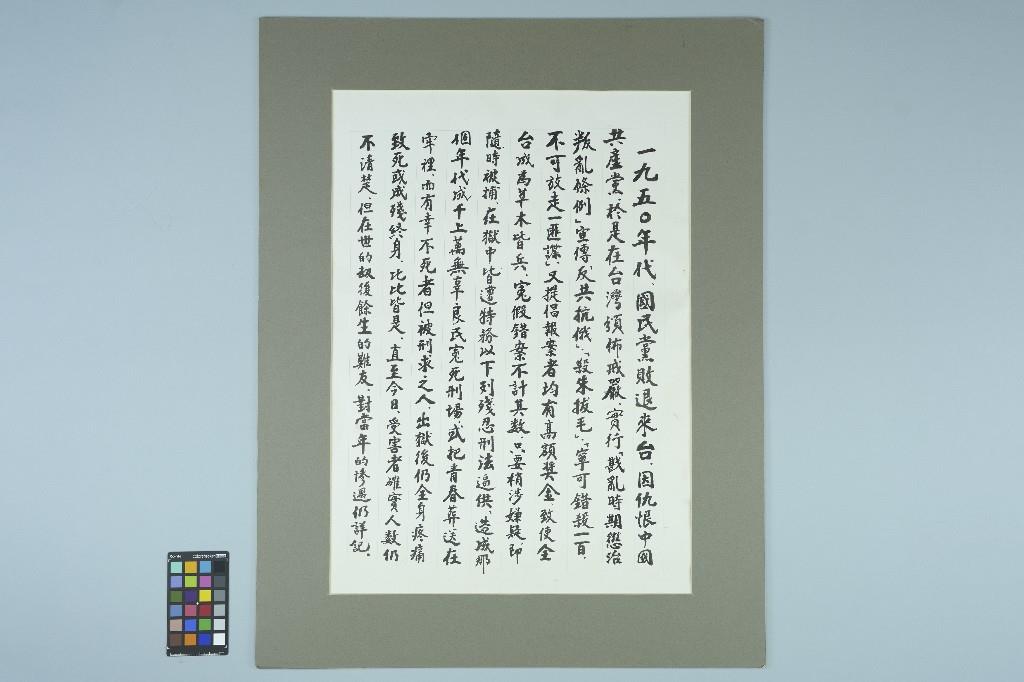 一九五〇年代、國民黨敗退來台、因仇恨中國
共產黨、於是在台灣頒佈戒嚴、實行「戡亂時期懲治
叛亂條例」宣傳「反共抗俄」、「殺朱拔毛」、「寧可錯殺一百、
不可放走一匪諜」、又提倡報案者均有高額獎金、致使全
台成為草木皆兵、冤假錯案不計其數、只要稍涉嫌疑、即
隨時被捕、在獄中皆遭特務以下列殘忍刑法逼供、造成那
個年代成千上萬無辜良民冤死刑場、或把青春葬送在
牢裡、而有幸不死者但被刑求之人、出獄後仍全身疼痛
致死或成殘終身、比比皆是、直至今日、受害者確實人數仍
不清楚、但在世的劫後餘生的難友、對當年的慘遇仍詳記。